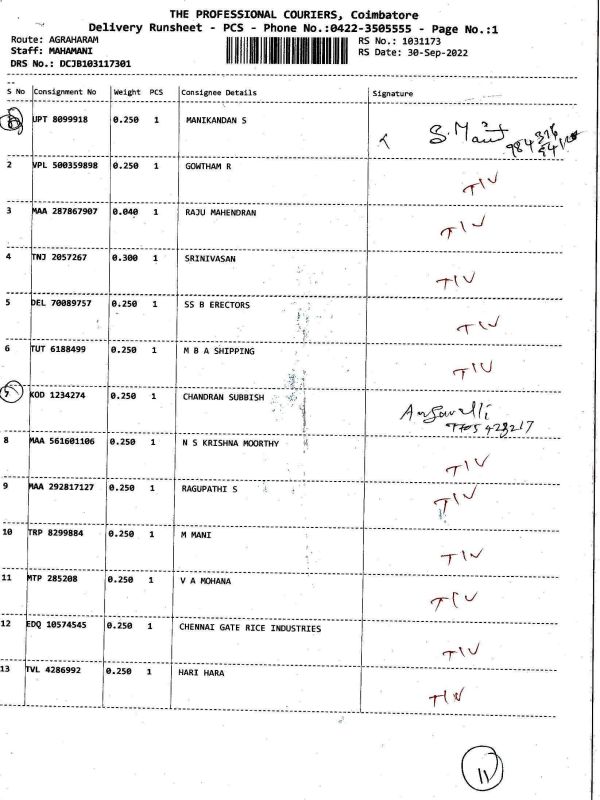 THE PROFESSIONAL COURIERS, Coimbatore
Delivery Runsheet - PCS - Phone No.:0422-3505555 - Page No.:1
Route: AGRAHARAM RS No.: 1031173
Staff: MAHAMANI RS Date: 30-Sep-2022
DRS No.: DCJB103117301
S No Consignment No Weight PCS Consignee Details Signature
UPT 8099918 0.250 1 MANIKANDAN S S. Mani
2 VPL 500359898 0.250 1 GOWTHAM R TIV
3 MAA 287867907 0.040 1 RAJU MAHENDRAN TIV
4 TNJ 2057267 0.300 1 SRINIVASAN TIV
5 DEL 70089757 0.250 1 SS B ERECTORS TIV
6 TUT 6188499 0.250 1 M B A SHIPPING TIV
7 KOD 1234274 0.250 1 CHANDRAN SUBBISH
8 MAA 561601106 0.250 1 N S KRISHNA MOORTHY TIV
9 MAA 292817127 0.250 1 RAGUPATHI S TIV
10 TRP 8299884 0.250 1 M MANI TIV
11 MTP 285208 0.250 1 V A MOHANA TIV
12 EDQ 10574545 0.250 1 CHENNAI GATE RICE INDUSTRIES TIV
13 TVL 4286992 0.250 1 HARI HARA TIV
11